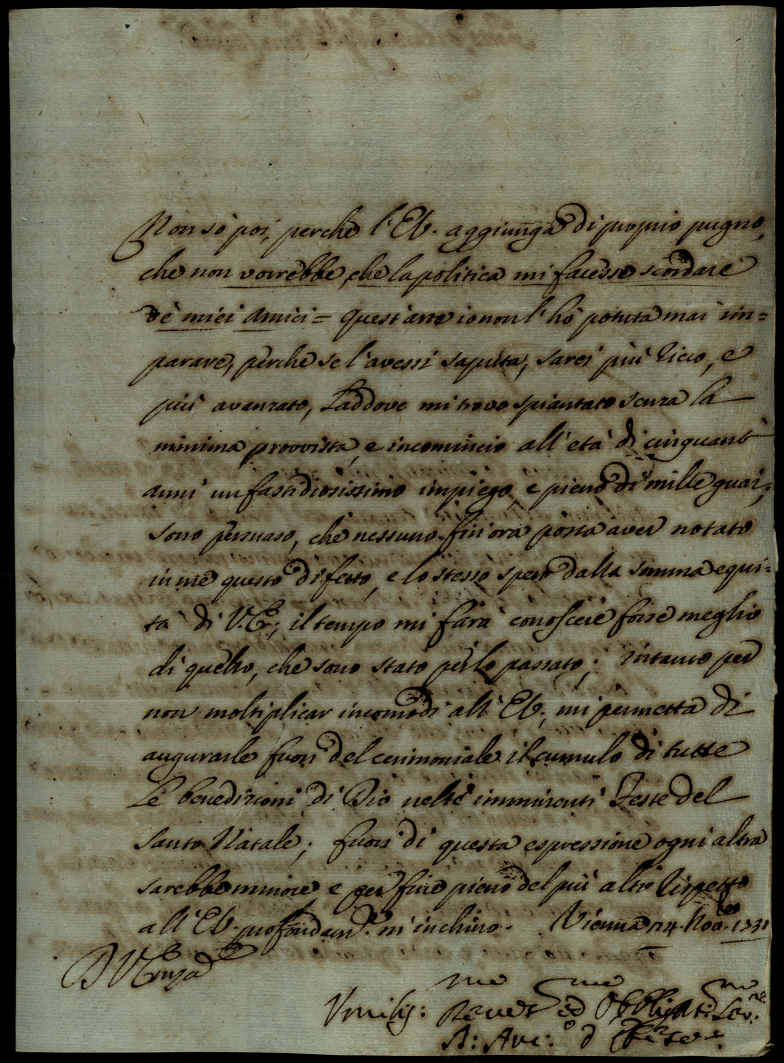 Non sò poi, perche l'Eb. aggiunga di proprio pugno,
che non vorrebbe, che la politica mi facesse scordare
de' miei Amici = quest'arte io non l'hò potuta mai im=
parare, perche se l'avessi saputa, sarei più ricco, e
più avanzato, Laddove mi trovo spiantato senza la
minima provvista, e incomincio all'età di cinquant'
anni un fastidiosissimo impiego, e pieno di mille guai;
sono persuaso, che nessuno fin'ora possa aver notato
in me questo difetto, e lo stesso spero dalla somma equi=
tà di V.E.; il tempo mi farà conoscere forse meglio
di quello, che sono stato per lo passato; Intanto per
non moltiplicar incomodi all'Eb, mi permetta di
augurarle fuori del cerimoniale il cumulo di tutte
le benedizioni di Dio nelle imminenti Feste del
Santo Natale; fuori di questa espressione ogni altra
sarebbe minore e per fine pieno del più alto rispetto
all'Eb. profondam.e m'inchino. Vienna 24. 1731
D V Enza
Umilis:me Rever ed Obbligat:me Ser:re
A: Arc:o d